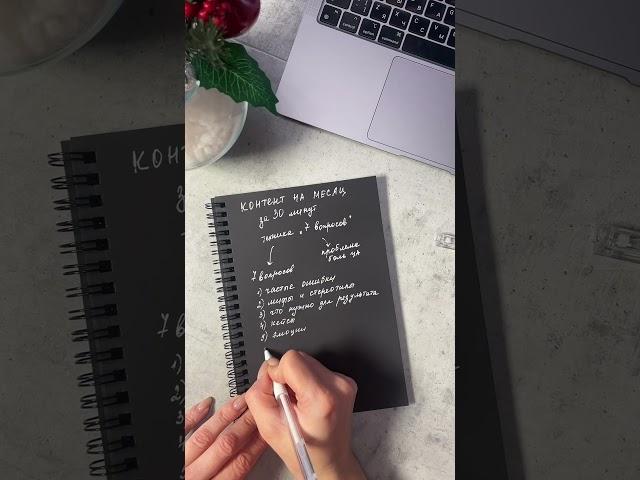 КОНТЕНТ НА МЕСЯЦ
за 30 минут
техника "7 вопросов"
проблема
боль ЦА
7 вопросов
1) частые ошибки
2) мифы и стереотипы
3) что нужно для результата
4) кейсы
5) эмоции